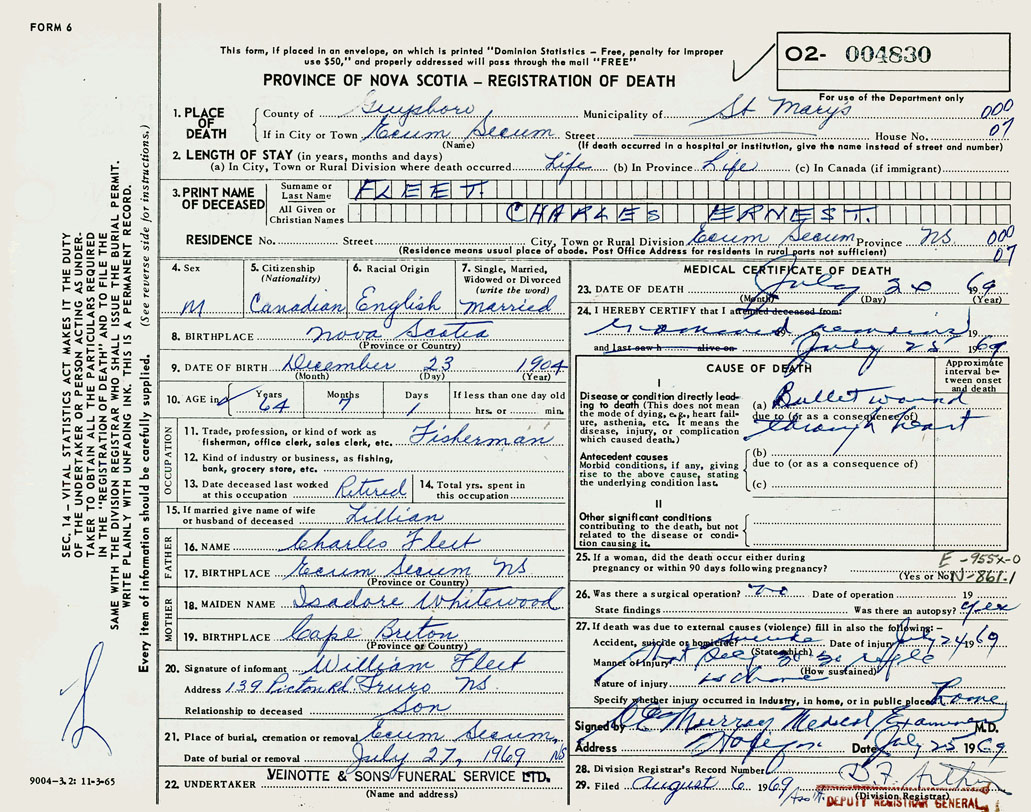 FORM 6
This form, if placed in an envelope, on which is printed "Dominion Statistics – Free, penalty for improper
use $50," and properly addressed will pass through the mail "FREE"
O2- 004830
PROVINCE OF NOVA SCOTIA – REGISTRATION OF DEATH
For use of the Department only
1. PLACE OF DEATH County of Guysboro Municipality of St Mary's 000
If in City or Town Ecum Secum Street House No. 07
(Name) (If death occurred in a hospital or institution, give the name instead of street and number)
2. LENGTH OF STAY (in years, months and days)
(a) In City, Town or Rural Division where death occurred Life (b) In Province Life (c) In Canada (if immigrant)
3. PRINT NAME OF DECEASED Surname or Last Name FLEET
All Given or Christian Names CHARLES ERNEST.
RESIDENCE No. Street City, Town or Rural Division Ecum Secum Province NS. 000
(Residence means usual place of abode. Post Office Address for residents in rural parts not sufficient) 07
4. Sex 5. Citizenship (Nationality) 6. Racial Origin 7. Single, Married, Widowed or Divorced (write the word)
M Canadian English Married
8. BIRTHPLACE Nova Scotia
(Province or Country)
9. DATE OF BIRTH December 23 1904
(Month) (Day) (Year)
10. AGE in Years Months Days If less than one full day
64 7 1 hrs. or min.
OCCUPATION
11. Trade, profession, or kind of work as fisherman, office clerk, sales clerk, etc. Fisherman
12. Kind of industry or business, as fishing, bank, grocery store, etc.
13. Date deceased last worked at this occupation Retired 14. Total yrs. spent in this occupation
15. If married give name of wife or husband of deceased Lillian
FATHER
16. NAME Charles Fleet
17. BIRTHPLACE Ecum Secum NS
(Province or Country)
MOTHER
18. MAIDEN NAME Isadore Whitewood
19. BIRTHPLACE Cape Breton
(Province or Country)
20. Signature of informant William Fleet
Address 139 Picton Rd. Truro NS.
Relationship to deceased Son
21. Place of burial, cremation or removal Ecum Secum, NS
Date of burial or removal July 27, 1969
22. UNDERTAKER VEINOTTE & SONS FUNERAL SERVICE LTD.
(Name and address)
MEDICAL CERTIFICATE OF DEATH
23. DATE OF DEATH July 24 1969
(Month) (Day) (Year)
24. I HEREBY CERTIFY that I attended deceased from:
examined remains 19
and last saw h alive on July 25 1969
CAUSE OF DEATH Approximate interval between onset and death
I
Disease or condition directly leading to death (This does not mean the mode of dying, e.g., heart failure, asthenia, etc. It means the disease, injury, or complication which caused death.)
(a) Bullet wound
due to (or as a consequence of)
through heart
Antecedent causes
Morbid conditions, if any, giving rise to the above cause, stating the underlying condition last.
(b)
due to (or as a consequence of)
(c)
II
Other significant conditions
contributing to the death, but not related to the disease or condition causing it.
25. If a woman, did the death occur either during pregnancy or within 90 days following pregnancy? (Yes or No)
E-955X-0
N-861.1
26. Was there a surgical operation? No Date of operation 19
State findings Was there an autopsy? yes
27. If death was due to external causes (violence) fill in also the following: –
Accident, suicide or homicide? Suicide Date of injury July 24 1969
(State which)
Manner of injury Shot self rifle
(How sustained)
Nature of injury
Specify whether injury occurred in industry, in home, or in public place home
Signed by Murray Medical Examiner M.D.
Address Date July 25 1969
28. Division Registrar's Record Number
29. Filed August 6 1969
(Division Registrar)
DEPUTY REGISTRAR GENERAL
SEC. 14 – VITAL STATISTICS ACT MAKES IT THE DUTY
OF THE UNDERTAKER OR PERSON ACTING AS UNDER-
TAKER TO OBTAIN ALL THE PARTICULARS REQUIRED
IN THE "REGISTRATION OF DEATH" AND TO FILE THE
SAME WITH THE DIVISION REGISTRAR WHO SHALL ISSUE THE BURIAL PERMIT.
WRITE PLAINLY WITH UNFADING INK. THIS IS A PERMANENT RECORD.
Every item of information should be carefully supplied. (See reverse side for instructions.)
9004-3.2: 11-3-65